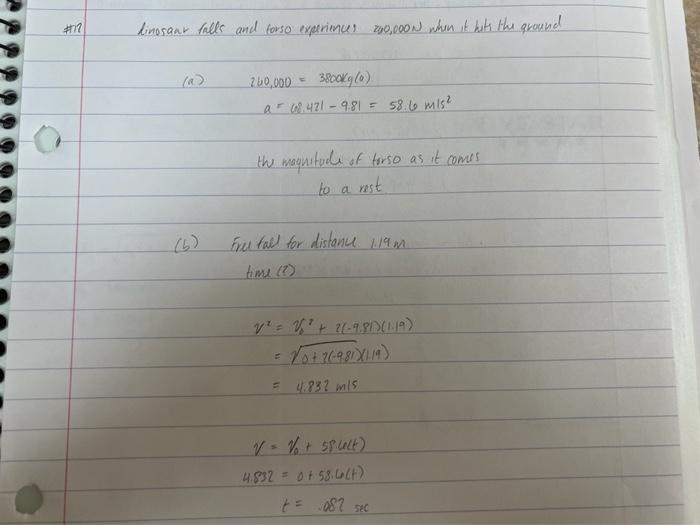 #12 dinosaur falls and torso experiences 260,000N when it hits the ground
(a) 260,000 = 3800kg(a)
a = 68.421 - 9.81 = 58.6 m/s²
the magnitude of torso as it comes
to a rest
(b) Free fall for distance 1.19m
time (?)
V² = V₀² + 2(-9.81)(1.19)
= √0+2(-9.81)(1.19)
= 4.832 m/s
V = V₀ + 58.6(t)
4.832 = 0 + 58.6(t)
t = .082 sec